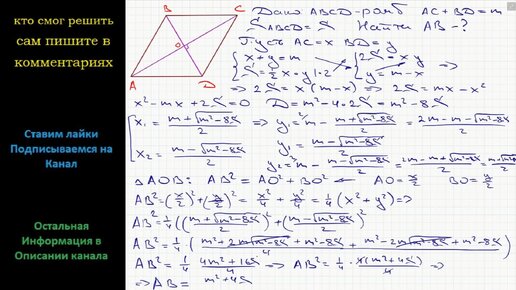 кто смог решить
сам пишите в
комментариях
Ставим лайки
Подписываемся на
Канал
Остальная
Информация в
Описании канала
B C
O
A D
Дано ABCD-ромб AC+BD=m
S_ABCD=S Найти AB-?
Пусть AC=x BD=y
{x+y=m {2S=xy
{S=1/2 x·y |·2 {y=m-x =>
=> 2S=x(m-x) => 2S=mx-x²
x²-mx+2S=0 D=m²-4·2S=m²-8S
[x₁=(m+√(m²-8S))/2 => y₁=m-(m+√(m²-8S))/2=(2m-m-√(m²-8S))/2
[x₂=(m-√(m²-8S))/2 y₂=m-(m-√(m²-8S))/2=
ΔAOB: AB²=AO²+BO² AO=x/2 BO=y/2
AB²=(x/2)²+(y/2)²=x²/4+y²/4=1/4(x²+y²)=>
AB²=1/4(((m+√(m²-8S))/2)²+((m-√(m²-8S))/2)²
AB²=1/4·(m²+2m√(m²-8S)+m²-8S+m²-2m√(m²-8S)+m²-8S)
AB²=1/4 => AB²=1/4· =>
=> AB=